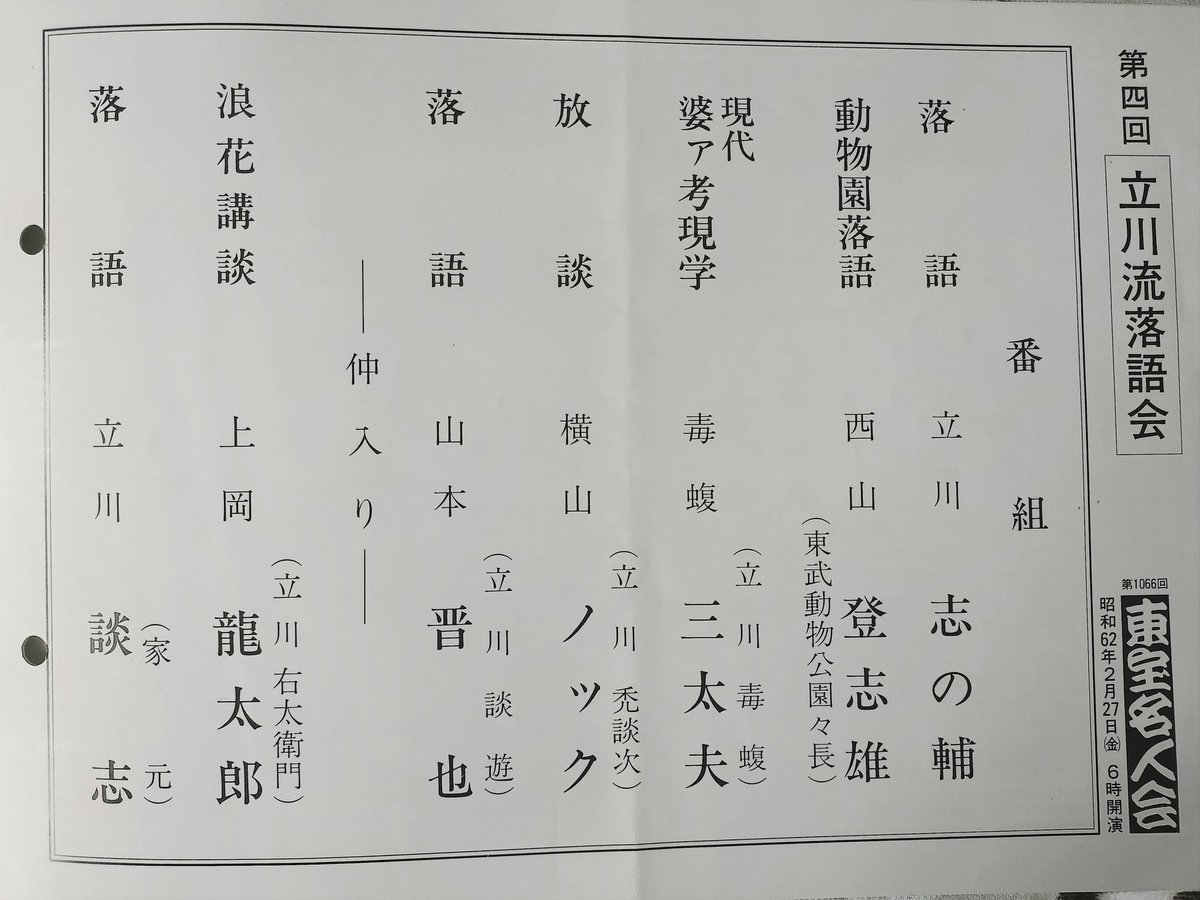 第四回 立川流落語会
第1066回
東宝名人会
昭和62年2月27日㈮ 6時開演
番組
落語 立川 志の輔
動物園落語 西山 登志雄
（東武動物公園々長）
現代
婆ァ考現学 毒蝮 三太夫
（立川毒蝮）
放談 横山 ノック
（立川禿談次）
落語 山本 晋也
（立川談遊）
―仲入り―
浪花講談 上岡 龍太郎
（立川右太衛門）
落語 立川 談志
（家元）